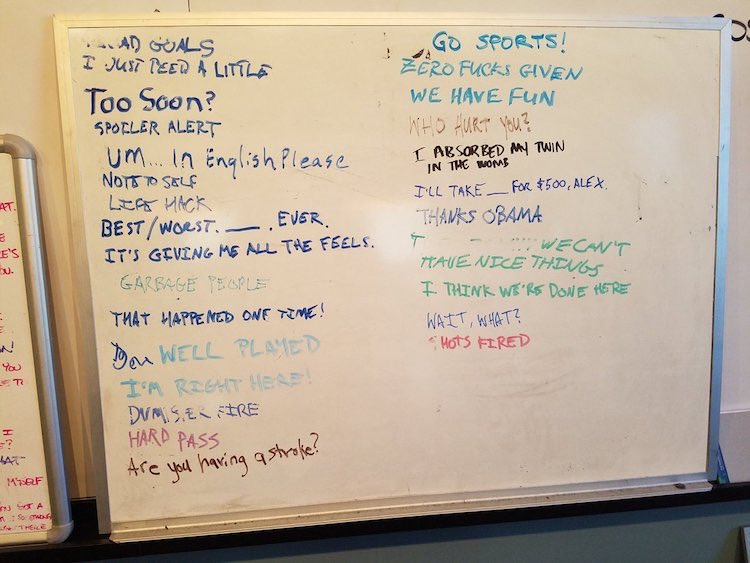 GOALS
I JUST PEED A LITTLE
Too Soon?
SPOILER ALERT
UM... In English Please
NOTE TO SELF
LIFE HACK
BEST/WORST. ___. EVER.
IT'S GIVING ME ALL THE FEELS.
GARBAGE PEOPLE
THAT HAPPENED ONE TIME!
WELL PLAYED
I'M RIGHT HERE!
DUMPSTER FIRE
HARD PASS
Are you having a stroke?
GO SPORTS!
ZERO FUCKS GIVEN
WE HAVE FUN
WHO HURT YOU?
I ABSORBED MY TWIN
IN THE WOMB
I'LL TAKE ___ FOR $500, ALEX.
THANKS OBAMA
WE CAN'T
HAVE NICE THINGS
I THINK WE'RE DONE HERE
WAIT, WHAT?
SHOTS FIRED
AT.
YOU
I
MYSELF